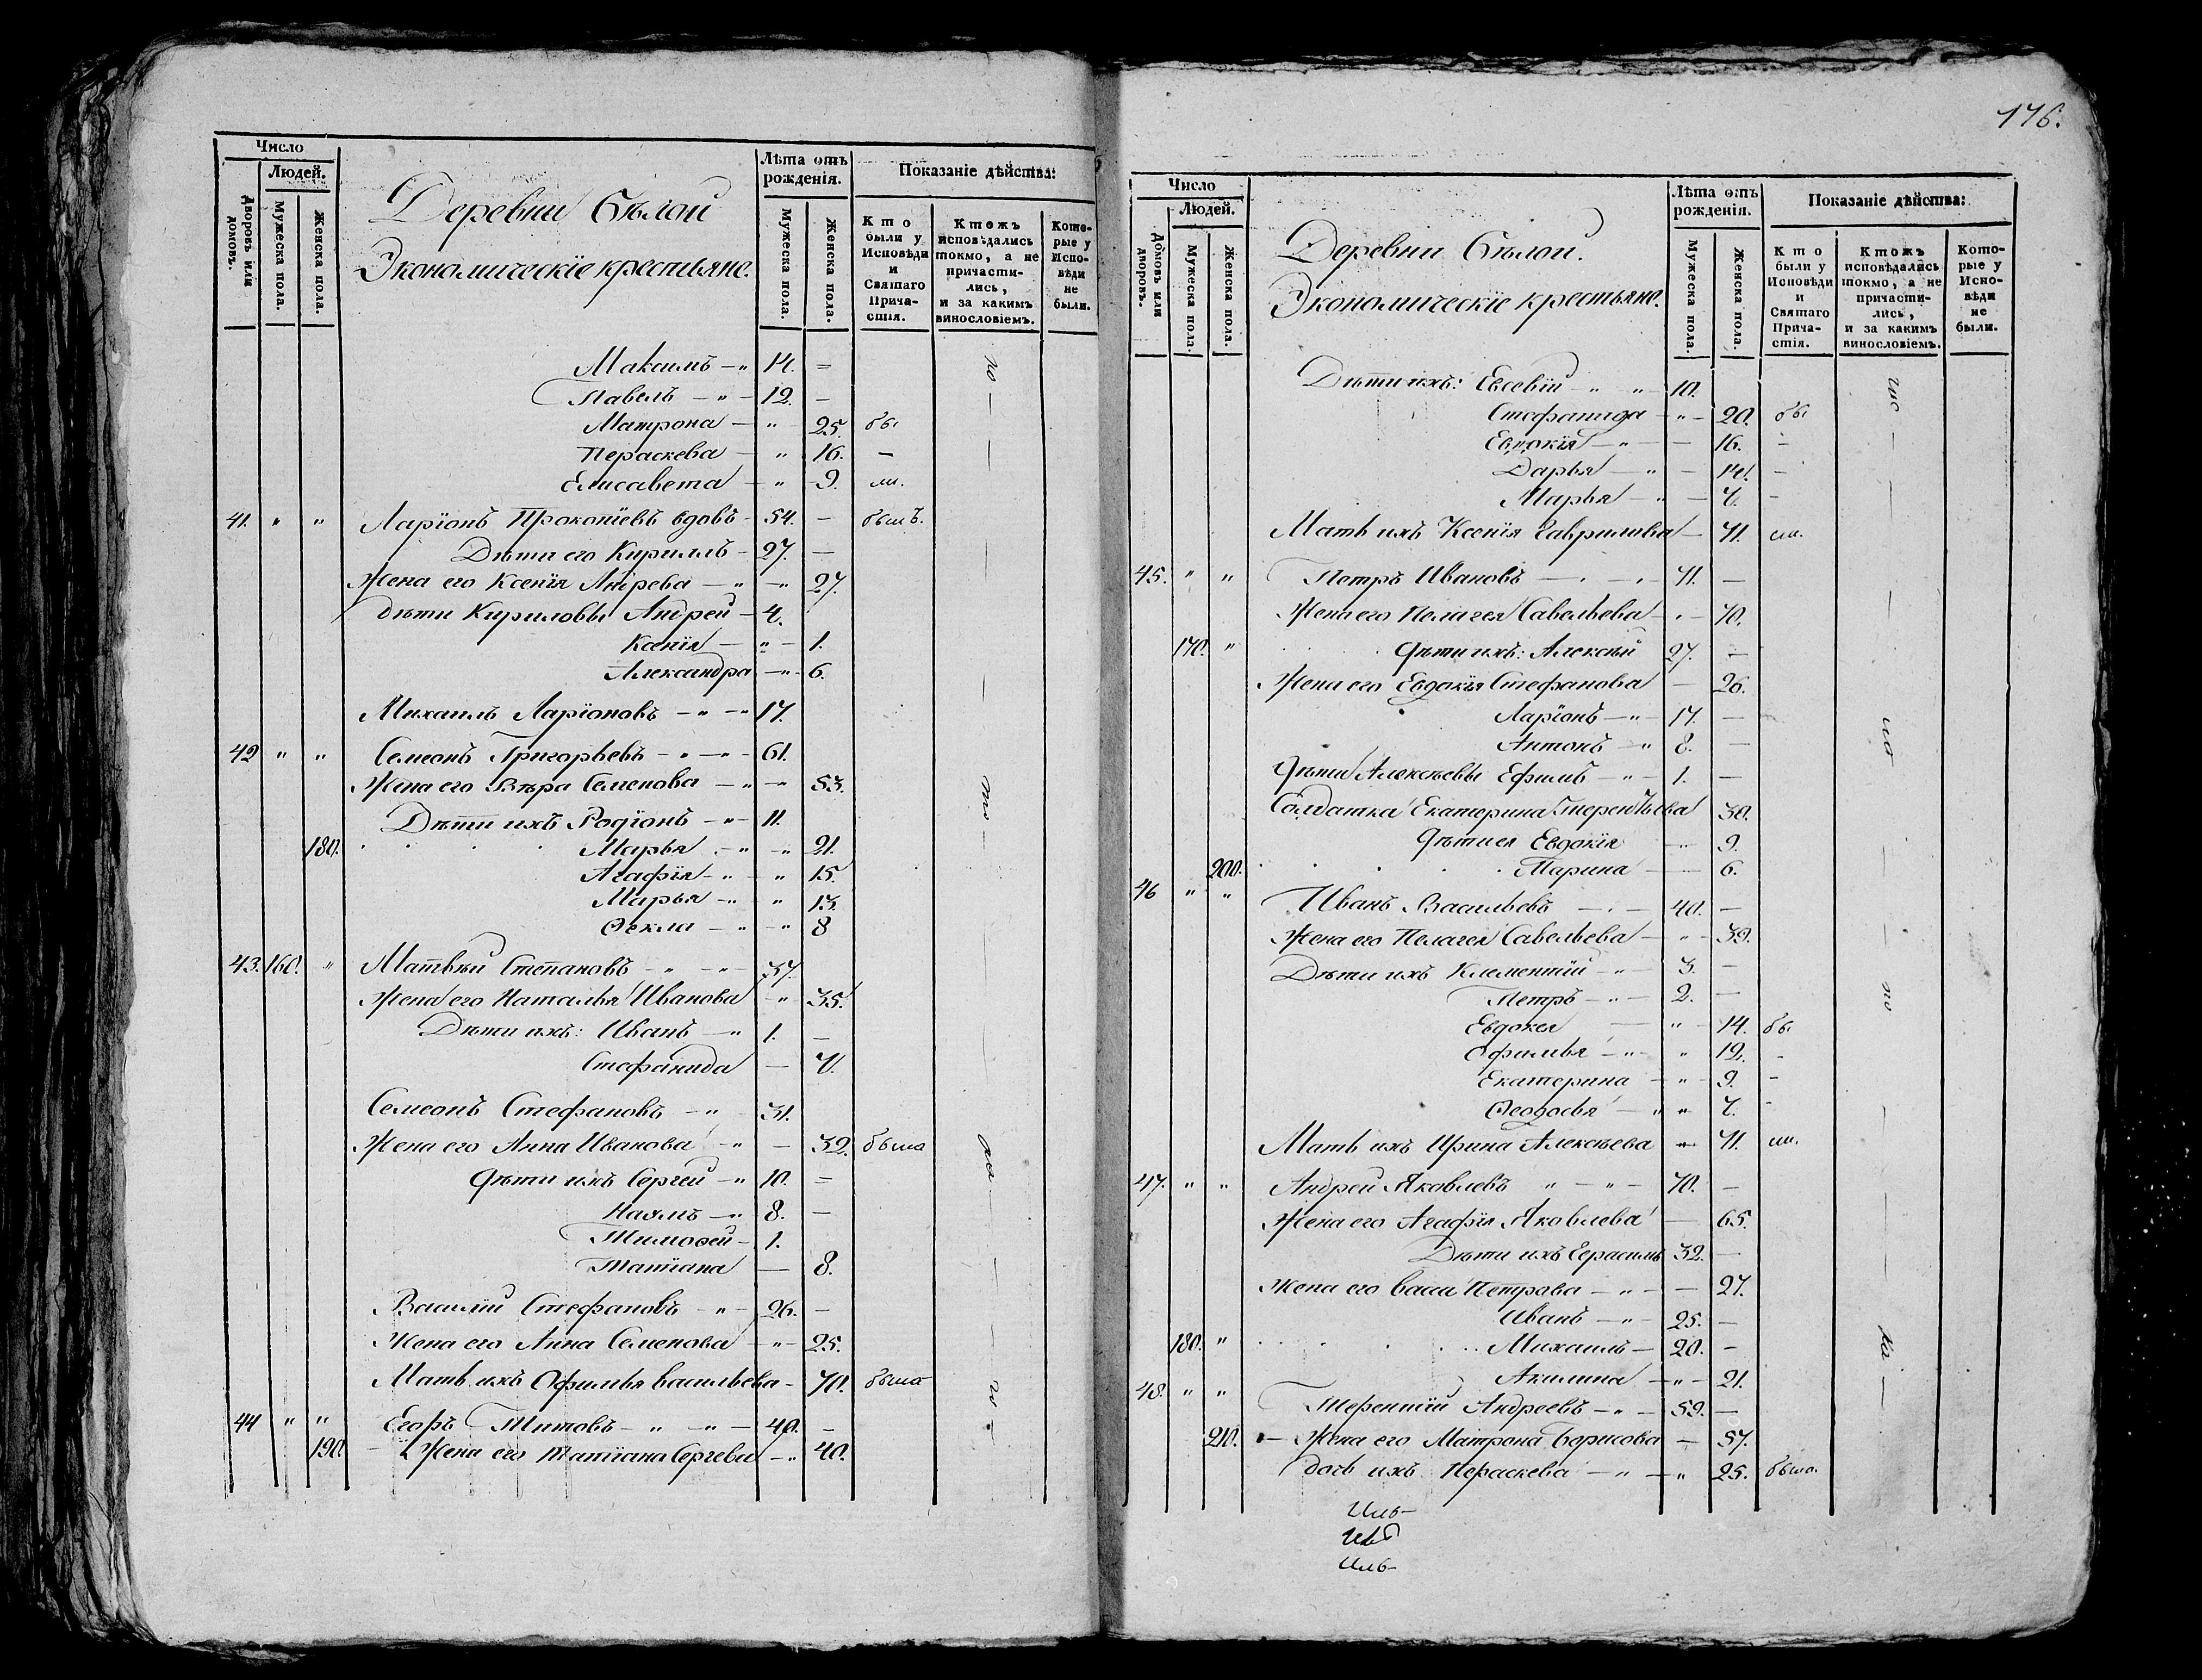 Число
Людей.
Дворовъ или домовъ.
Мужеска пола.
Женска пола.
Деревни Бѣлой
Экономическіе крестьяне.
Лѣта отъ рожденія.
Мужеска пола.
Женска пола.
Показаніе дѣйства:
Кто были у Исповѣди и Святаго Прича-стія.
Ктожъ исповѣдались токмо, а не причасти-лись, и за какимъ винословіемъ.
Кото-рые у Испо-вѣди не были.
Максимъ — " 14. —
Павелъ — " — 12. —
Матрона — " 25. бы
Параскева — " 16. —
Елисавета — " 9. ли.
41. " " Ларіонъ Прокопіевъ вдовъ — 54. — былъ.
Дѣти его Кириллъ — 27. —
Жена его Ксенія Андрева — " — " 27.
дѣти Кириловы Андрей — 4.
Ксенія — " — 1.
Александра — " 6.
Михаилъ Ларіоновъ — " — " 17.
42 " " Семеонъ Григорьевъ — " — " — 61.
Жена его Вѣра Семенова — " — " 53.
Дѣти ихъ Родіонъ — " — 11.
180. Марья — " — " 21.
Агафія — " — " 15.
Марья — " " 13.
Ѳекла — " — " 8
43. 160. " Матвѣй Степановъ — " — " — 37.
Жена его Наталья Иванова — " 35.
Дѣти ихъ: Иванъ — " 1. —
Стефанида — 7.
Семеонъ Стефановъ — " 31.
Жена его Анна Иванова — " — 32. была
Дѣти ихъ Сергей — " 10. —
Наумъ — " 8. —
Тимоѳей — 1.
Татіана — 8.
Василій Стефановъ — " — 26. —
Жена его Анна Семенова — " — 25.
Мать ихъ Офимья Васильева — 70. была
44 " " Егоръ Титовъ — " — " — 40. —
190. Жена его Татіана Сергеева — " 40.
176.
Число
Людей.
Домовъ или дворовъ.
Мужеска пола.
Женска пола.
Деревни Бѣлой.
Экономическіе крестьяне.
Лѣта отъ рожденія.
Мужеска пола.
Женска пола.
Показаніе дѣйства:
Кто были у Исповѣди и Святаго Прича-стія.
Ктожъ исповѣдались токмо, а не причасти-лись, и за какимъ винословіемъ.
Кото-рые у Испо-вѣди не были.
Дѣти ихъ: Евсевій — " — " — 10.
Стефанида — " — 20. бы
Евдокія — " — 16. —
Дарья — " — 14. —
Марья — " — 7. —
Мать ихъ Ксенія Гаврилова — 71. ли.
45. " " Петръ Ивановъ — " — " — 71. —
Жена его Пелагея Савельева — " — 70.
170. " Дѣти ихъ: Алексѣй 27. —
Жена его Евдокія Стефанова — 26.
Ларіонъ — " — 17. —
Антонъ — " 8. —
Дѣти Алексѣевы Ефимъ — " — 1. —
Солдатка Екатерина Терентьева 30.
Дѣти ея Евдокія — " 9.
200. Марина — 6.
46 " " Иванъ Васильевъ — " — 40. —
Жена его Пелагея Савельева — " — 39.
Дѣти ихъ Клементій — " — 3. —
Петръ — " — 2. —
Евдокея — " — 14. бы
Офимья — " — " 12. —
Екатерина — " — 9. —
Ѳеодосья — " " 7. —
Мать ихъ Ирина Алексѣева — 71. ли.
47. " " Андрей Яковлевъ " — " — 70. —
Жена его Агафія Яковлева — 65.
Дѣти ихъ Герасимъ 32. —
Жена его Васса Петрова — " — — 27.
Иванъ — " — 25. —
180. " Михаилъ — 20. —
Акилина — " — 21.
48. " " Терентій Андреевъ — " — 59. —
210. Жена его Матрона Борисова — 57.
дочь ихъ Параскева — " — " 25. была.